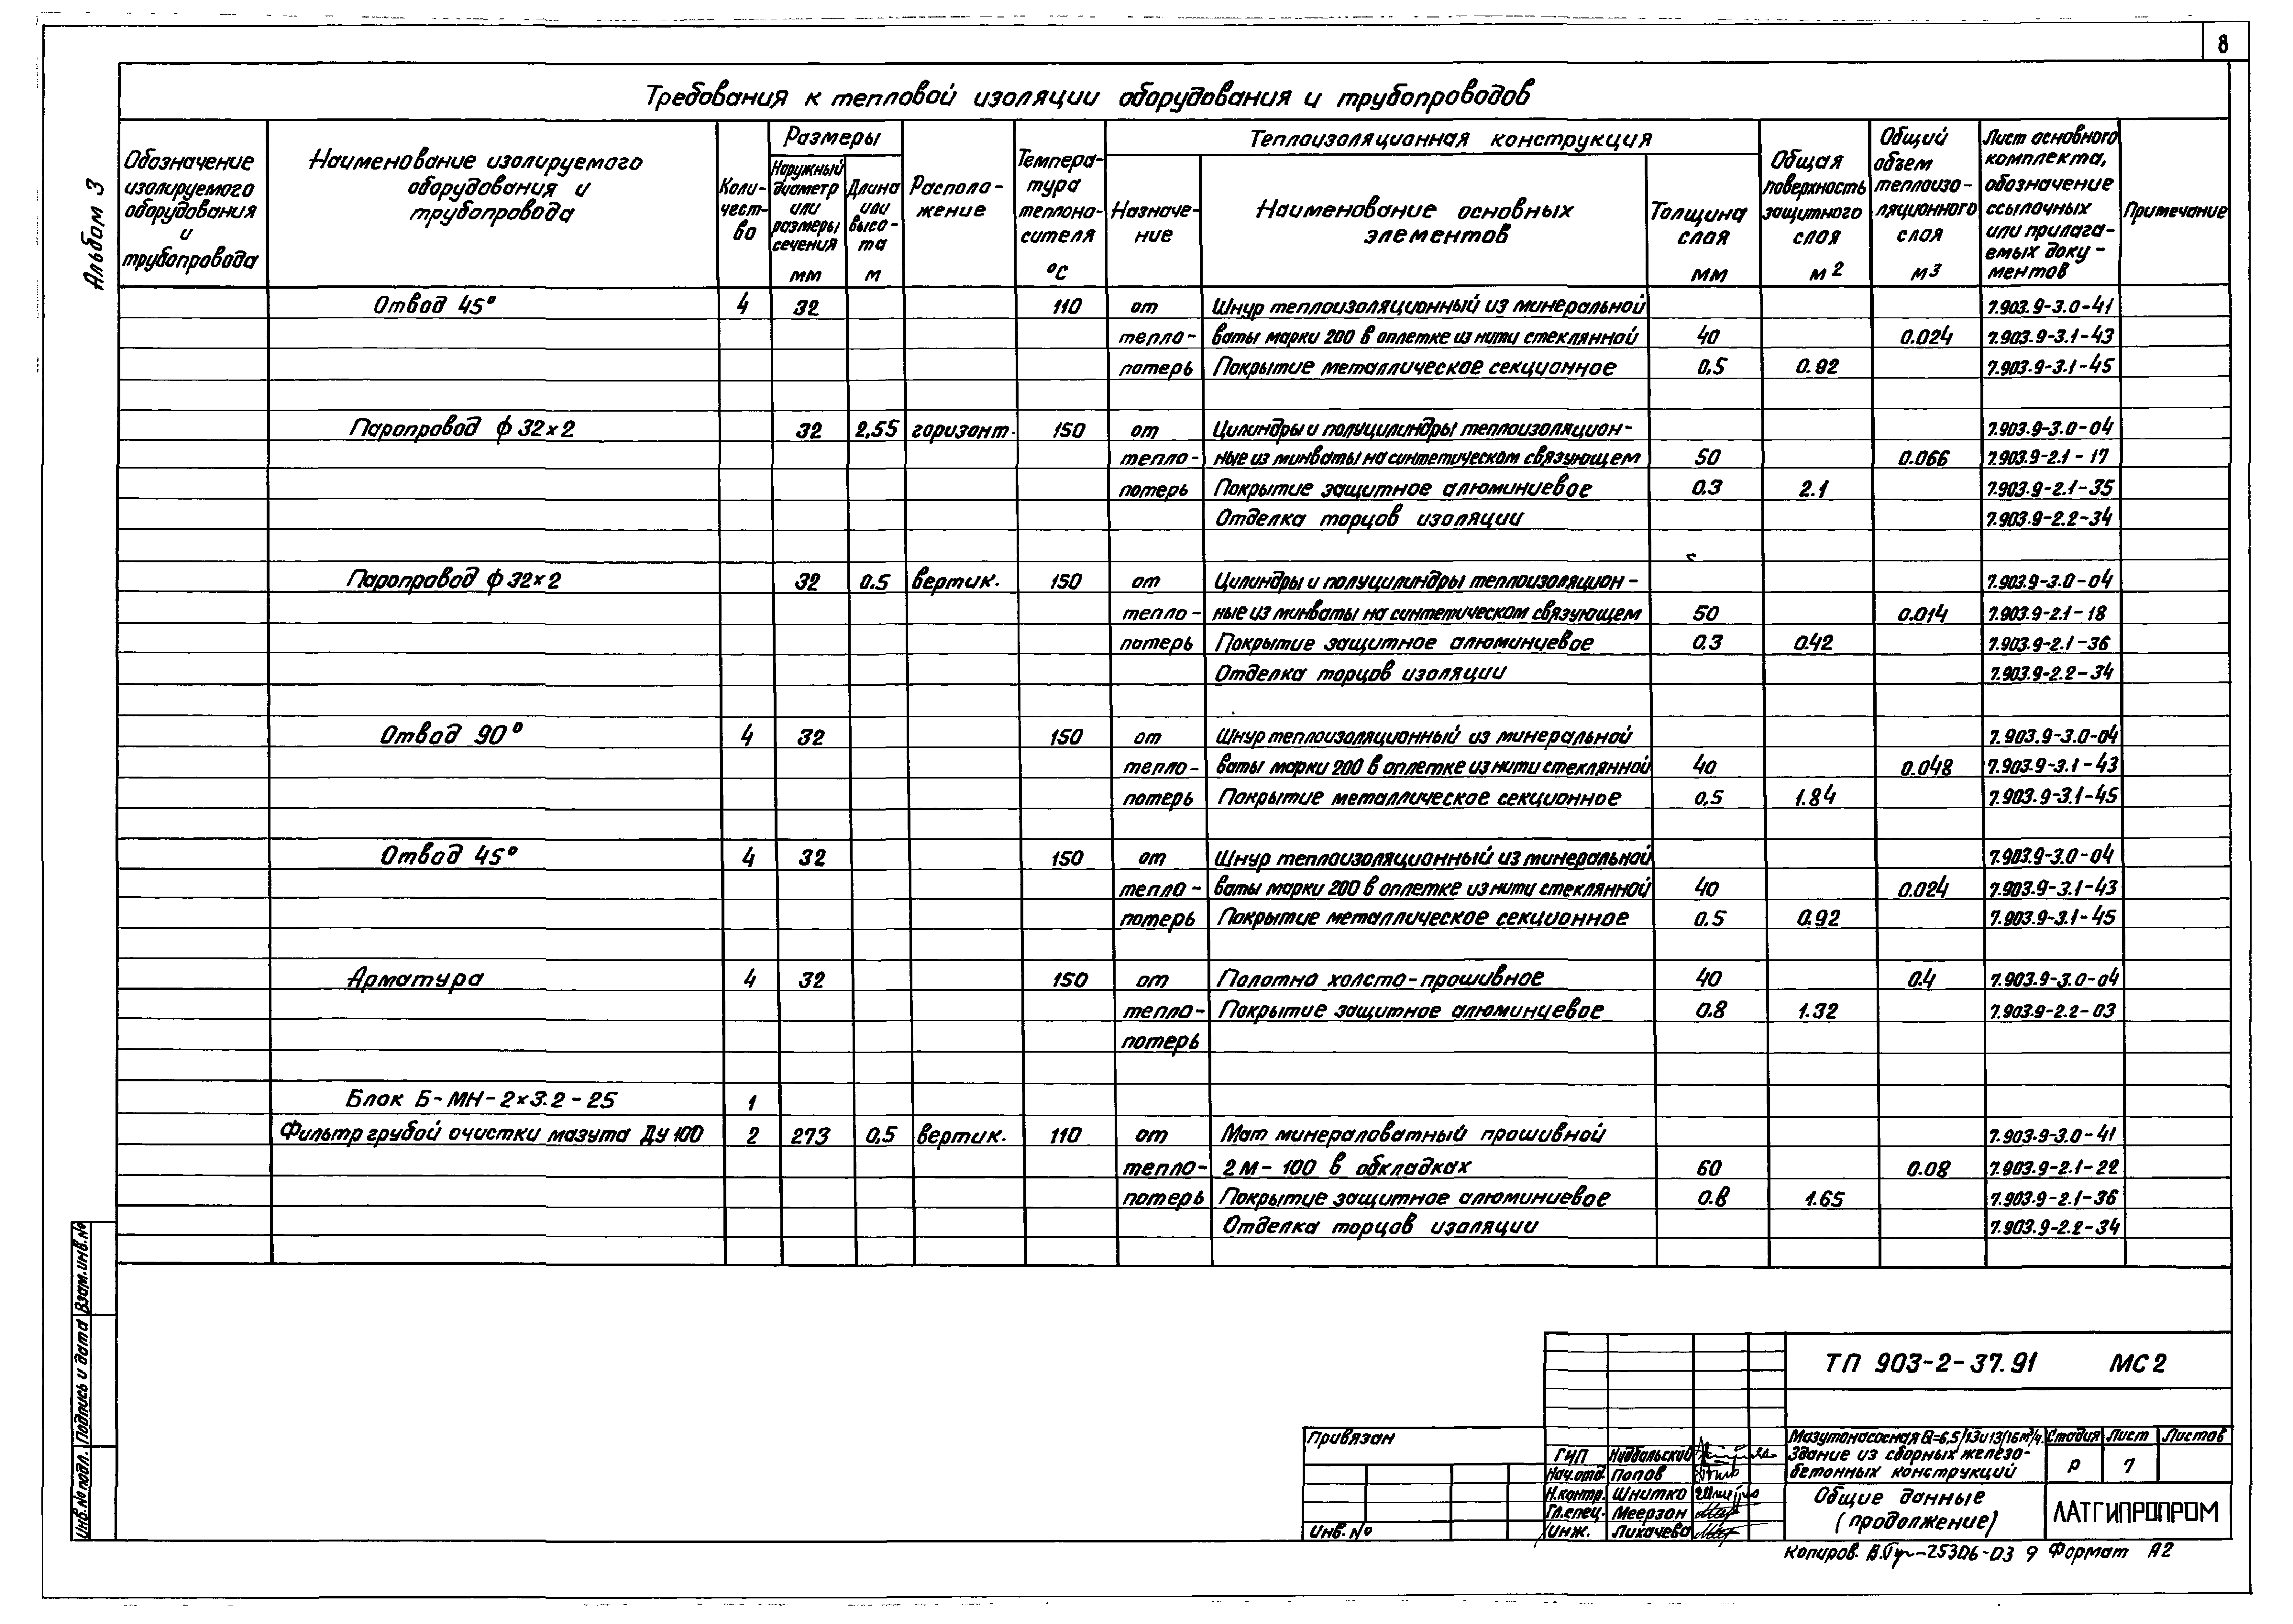 8
Альбом 3
Требования к тепловой изоляции оборудования и трубопроводов
Обозначение изолируемого оборудования и трубопровода
Наименование изолируемого оборудования и трубопровода
Коли-чест-во
Размеры
Наружный диаметр или размеры сечения мм
Длина или высо-та м
Располо-жение
Темпера-тура теплоно-сителя °С
Теплоизоляционная конструкция
Назначе-ние
Наименование основных элементов
Толщина слоя мм
Общая поверхность защитного слоя м2
Общий объем теплоизо-ляционного слоя м3
Лист основного комплекта, обозначение ссылочных или прилага-емых доку-ментов
Примечание
Отвод 45° 4 32 110 от Шнур теплоизоляционный из минеральной 7.903.9-3.0-41
тепло- ваты марки 200 в оплетке из нити стеклянной 40 0.024 7.903.9-3.1-43
потерь Покрытие металлическое секционное 0,5 0.92 7.903.9-3.1-45
Паропровод ф 32×2 32 2,55 горизонт. 150 от Цилиндры и полуцилиндры теплоизоляцион- 7.903.9-3.0-04
тепло- ные из минваты на синтетическом связующем 50 0.066 7.903.9-2.1-17
потерь Покрытие защитное алюминиевое 0.3 2.1 7.903.9-2.1-35
Отделка торцов изоляции 7.903.9-2.2-34
Паропровод ф 32×2 32 0.5 вертик. 150 от Цилиндры и полуцилиндры теплоизоляцион- 7.903.9-3.0-04
тепло- ные из минваты на синтетическом связующем 50 0.014 7.903.9-2.1-18
потерь Покрытие защитное алюминиевое 0.3 0.42 7.903.9-2.1-36
Отделка торцов изоляции 7.903.9-2.2-34
Отвод 90° 4 32 150 от Шнур теплоизоляционный из минеральной 7.903.9-3.0-04
тепло- ваты марки 200 в оплетке из нити стеклянной 40 0.048 7.903.9-3.1-43
потерь Покрытие металлическое секционное 0,5 1.84 7.903.9-3.1-45
Отвод 45° 4 32 150 от Шнур теплоизоляционный из минеральной 7.903.9-3.0-04
тепло- ваты марки 200 в оплетке из нити стеклянной 40 0.024 7.903.9-3.1-43
потерь Покрытие металлическое секционное 0.5 0.92 7.903.9-3.1-45
Арматура 4 32 150 от Полотно холсто-прошивное 40 0.4 7.903.9-3.0-04
тепло- Покрытие защитное алюминиевое 0.8 1.32 7.903.9-2.2-03
потерь
Блок Б-МН-2×3.2-25 1
Фильтр грубой очистки мазута ДУ 100 2 273 0,5 вертик. 110 от Мат минераловатный прошивной 7.903.9-3.0-41
тепло- 2М-100 в обкладках 60 0.08 7.903.9-2.1-22
потерь Покрытие защитное алюминиевое 0.8 1.65 7.903.9-2.1-36
Отделка торцов изоляции 7.903.9-2.2-34
Взам.инв.№
Подпись и дата
Инв.№ подл.
ТП 903-2-37.91 МС2
Привязан
Инв. №
ГИП Нидбальский
Нач.отд. Попов
Н.контр. Шнитко
Гл.спец. Меерзон
Инж. Лихачева
Мазутонасосная Q=6,5/13 и 13/16 м³/ч.
Здание из сборных железо-
бетонных конструкций
Стадия Лист Листов
Р 7
Общие данные
(продолжение)
ЛАТГИПРОПРОМ
Копиров. 25306-03 9 Формат А2